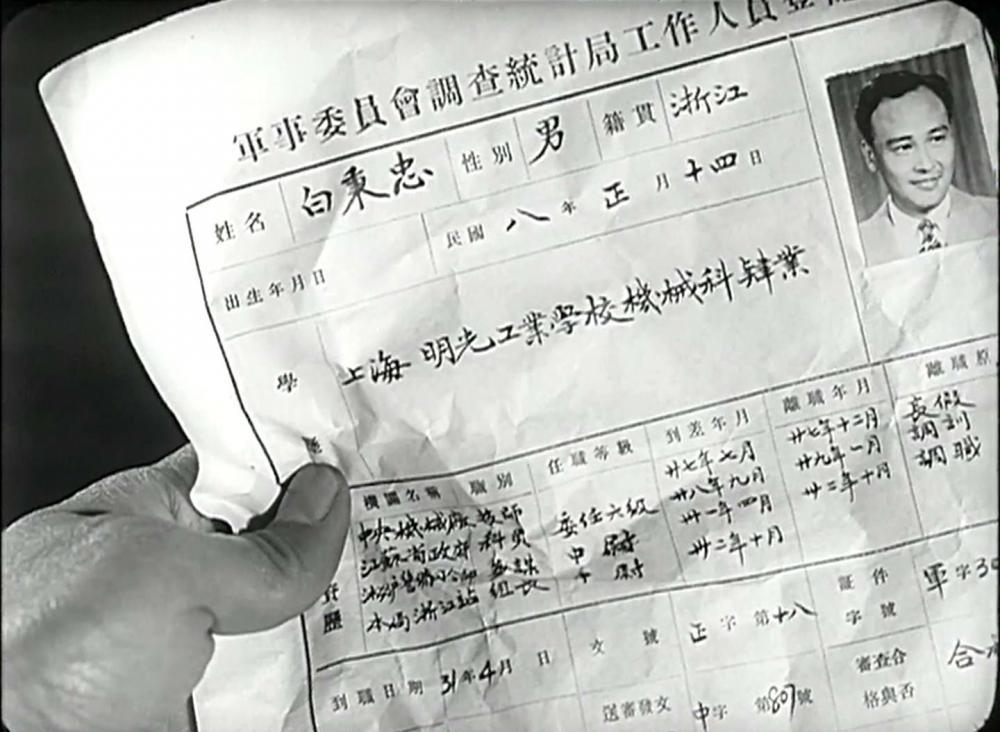 軍事委員會調查統計局工作人員登
姓名 白秉忠 性別 男 籍貫 浙江
出生年月日 民國 八 年 正 月 十四 日
學 上海明光工業學校機械科肄業
機關名稱 職別 任職等級 到差年月 離職年月 離職原
中央機械廠 技師 廿七年七月 廿七年十二月 長假
江蘇省政府 科員 委任六級 廿八年九月 廿九年一月 調訓
中尉 卅一年四月 卅二年十月 調職
本局浙江站 組長 尉 卅二年十月
歷
到職日期 31年4月 日 文號 正字第十八 証件字號 軍字30
送審發文 中字第807號 審查合格與否 合